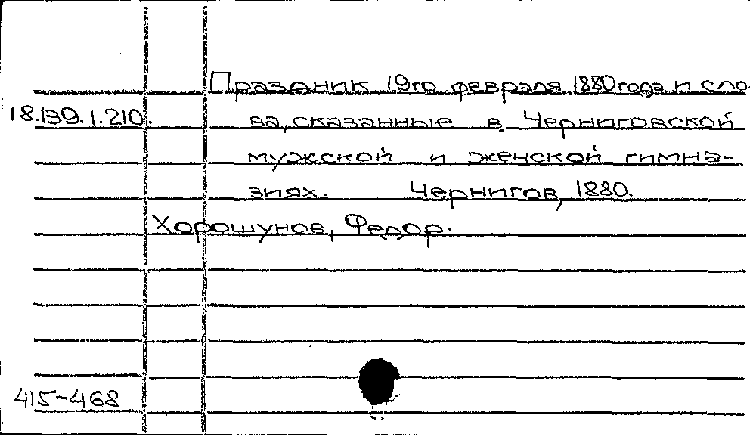 Праздник 19го февраля 1880 года и сло-
18.139.1.210.
ва, сказанные в Черниговской
мужской и женской гимна-
зиях. Чернигов, 1880.
Хорошунов, Федор.
415-468